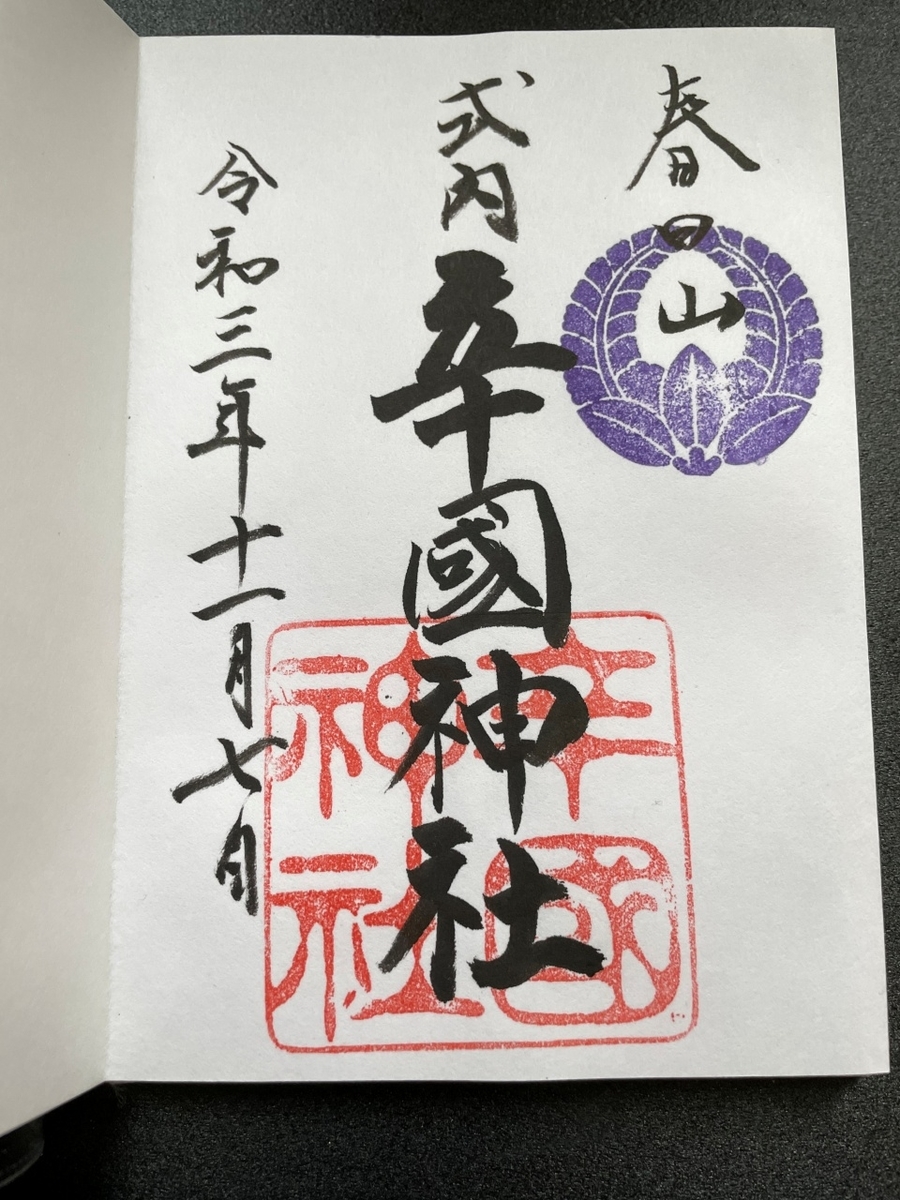 春日山
式内 辛國神社
令和三年十一月七日
辛國神社